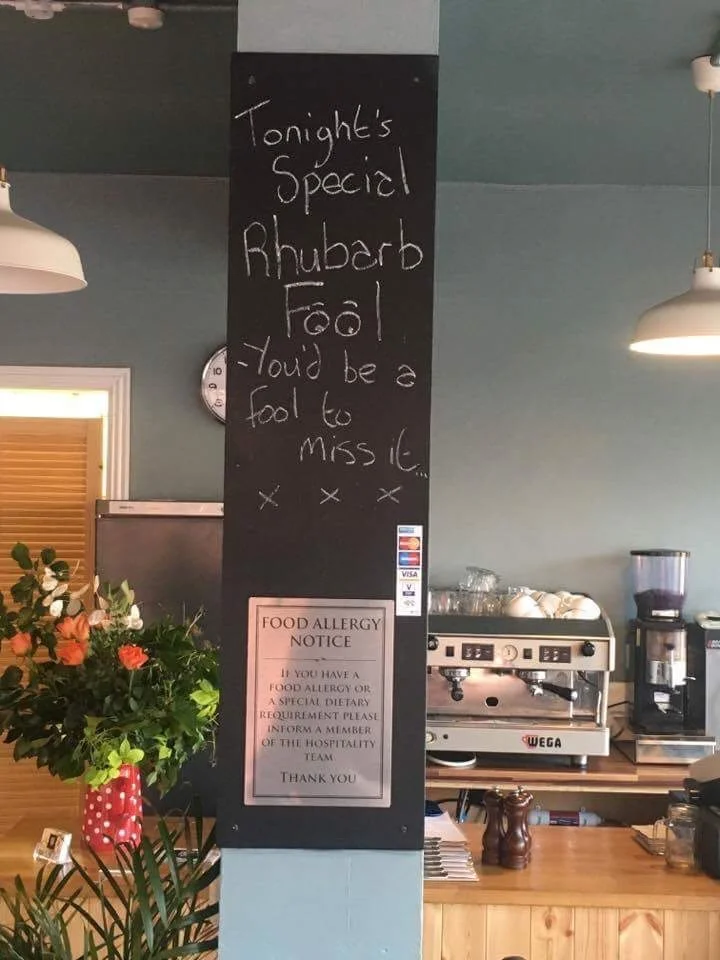 Tonight's
Special
Rhubarb
Fool
-You'd be a
fool to
miss it...
x x x
VISA
FOOD ALLERGY
NOTICE
IF YOU HAVE A
FOOD ALLERGY OR
A SPECIAL DIETARY
REQUIREMENT PLEASE
INFORM A MEMBER
OF THE HOSPITALITY
TEAM
THANK YOU
WEGA